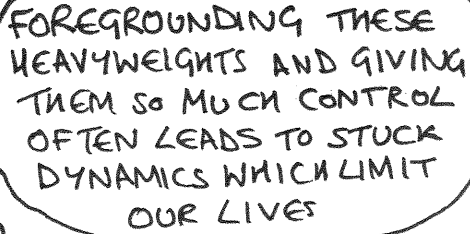 FOREGROUNDING THESE
HEAVYWEIGHTS AND GIVING
THEM SO MUCH CONTROL
OFTEN LEADS TO STUCK
DYNAMICS WHICH LIMIT
OUR LIVES